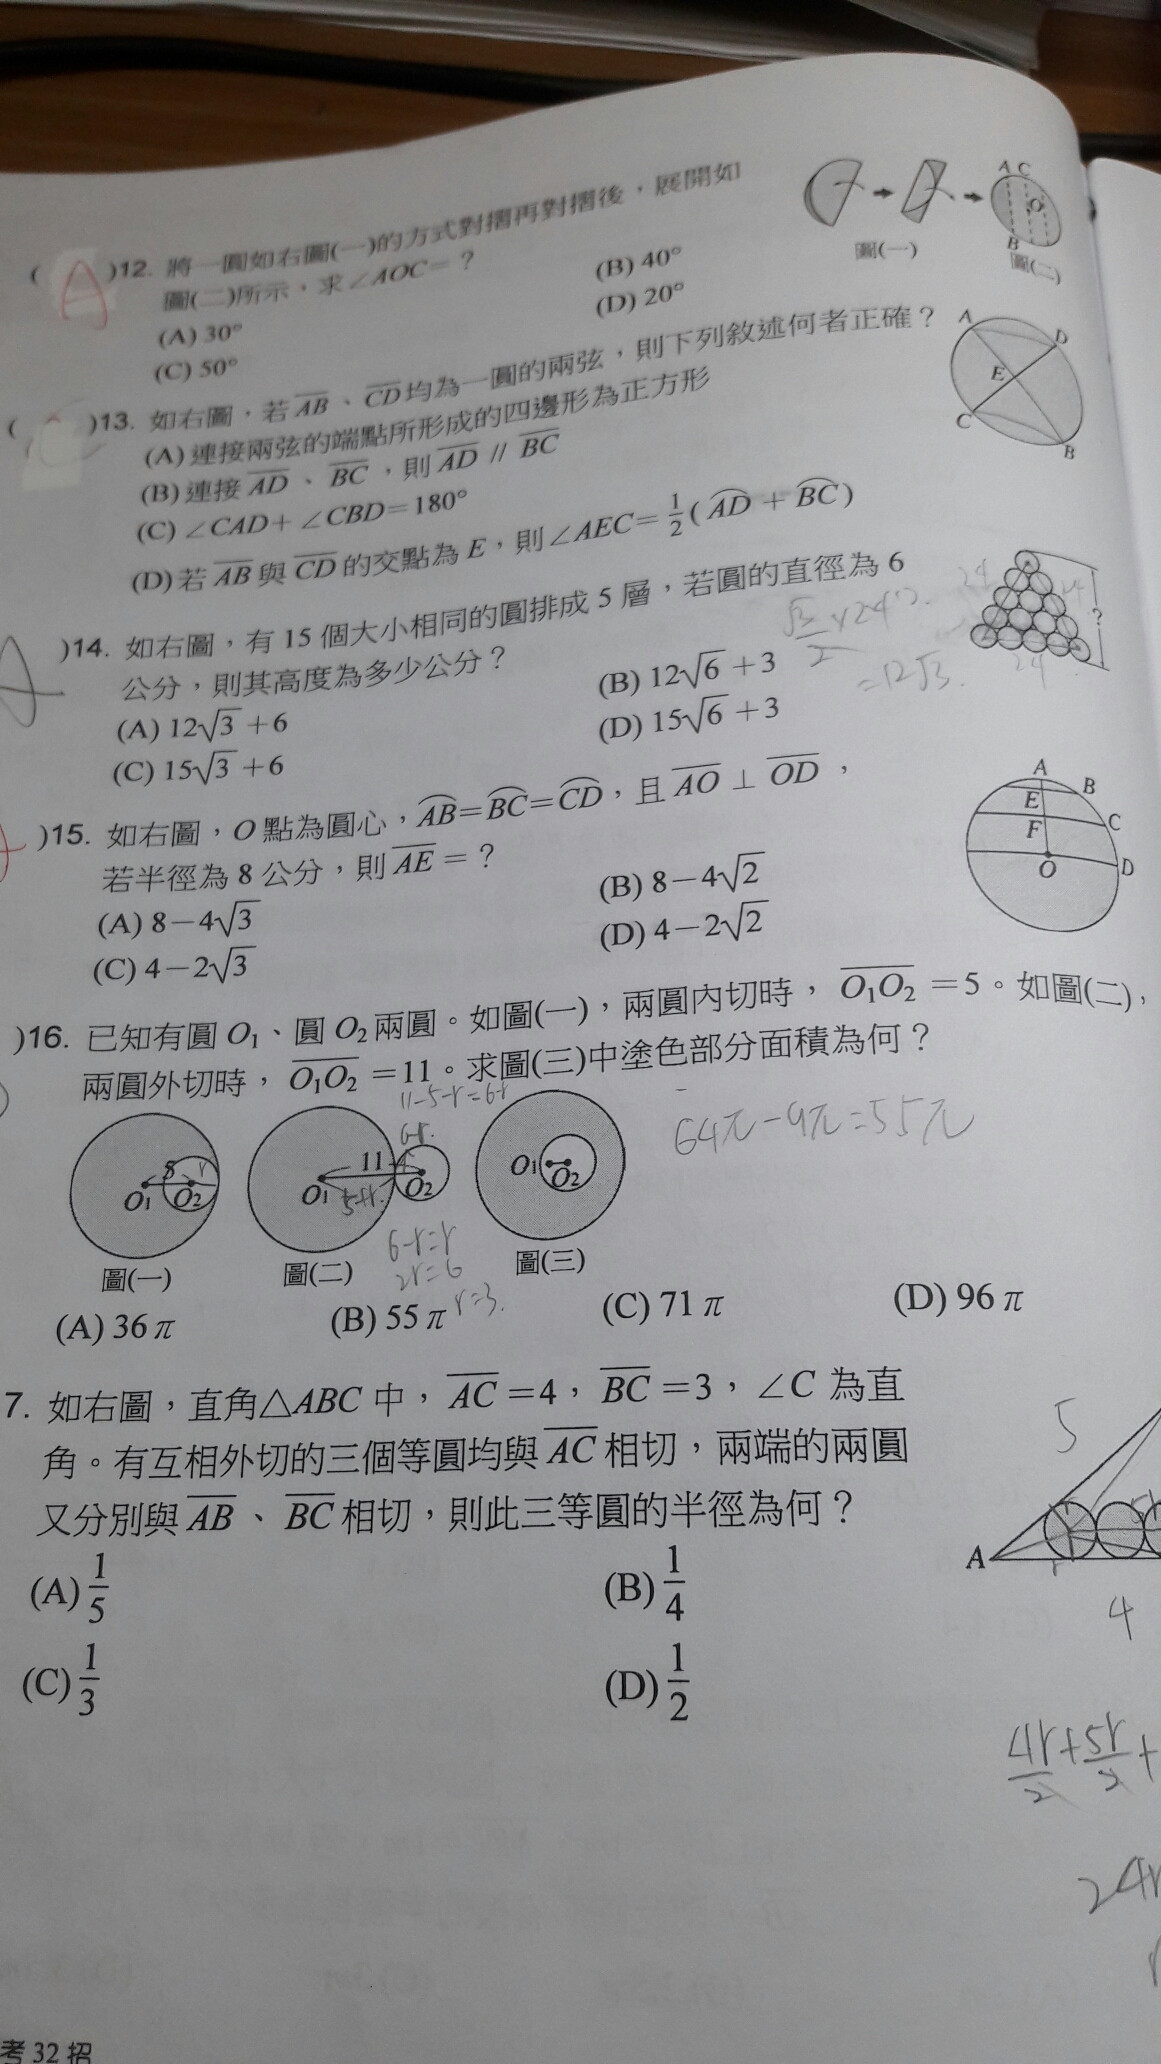 ( A )12. 將一圓如右圖(一)的方式對摺再對摺後,展開如
圖(二)所示,求∠AOC=?
(A) 30° (B) 40°
(C) 50° (D) 20°
圖(一) 圖(二)
A C
O
B
( C )13. 如右圖,若AB、CD均為一圓的兩弦,則下列敘述何者正確?
(A)連接兩弦的端點所形成的四邊形為正方形
(B)連接AD、BC,則AD // BC
(C)∠CAD+∠CBD=180°
(D)若AB與CD的交點為E,則∠AEC=1/2(AD+BC)
A D
E
C B
A )14. 如右圖,有15個大小相同的圓排成5層,若圓的直徑為6
公分,則其高度為多少公分?
(A) 12√3+6 (B) 12√6+3
(C) 15√3+6 (D) 15√6+3
√3/2×24
=12√3
24
24
?
)15. 如右圖,O點為圓心,AB=BC=CD,且AO⊥OD,
若半徑為8公分,則AE=?
(A) 8-4√3 (B) 8-4√2
(C) 4-2√3 (D) 4-2√2
A B
E C
F
O D
)16. 已知有圓O1、圓O2兩圓。如圖(一),兩圓內切時,O1O2=5。如圖(二),
兩圓外切時,O1O2=11。求圖(三)中塗色部分面積為何?
11-5-r=6-r
64π-9π=55π
6-r
5 r
O1 O2
11
O1 O2
5+r
O1 O2
6-r=r
2r=6
r=3
圖(一) 圖(二) 圖(三)
(A) 36π (B) 55π (C) 71π (D) 96π
7. 如右圖,直角△ABC中,AC=4,BC=3,∠C為直
角。有互相外切的三個等圓均與AC相切,兩端的兩圓
又分別與AB、BC相切,則此三等圓的半徑為何?
(A) 1/5 (B) 1/4
(C) 1/3 (D) 1/2
5
A
r
4
4r/2+5r/2+
24r
考 32 招